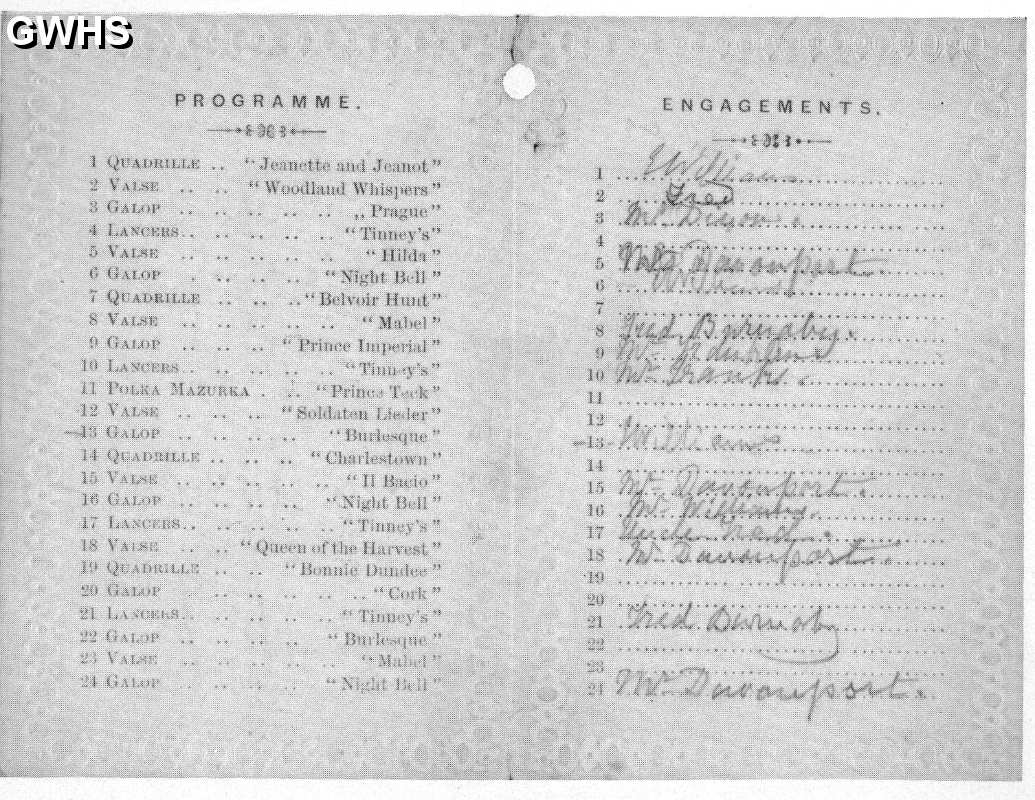 GWHS
PROGRAMME.
1 QUADRILLE .. "Jeanette and Jeanot"
2 VALSE .. .. "Woodland Whispers"
3 GALOP .. .. .. .. .. ,, Prague"
4 LANCERS.. .. .. .. .. "Tinney's"
5 VALSE .. .. .. .. .. "Hilda"
6 GALOP . .. .. .. "Night Bell"
7 QUADRILLE .. .. .. "Belvoir Hunt"
8 VALSE .. .. .. .. .. "Mabel"
9 GALOP .. .. .. "Prince Imperial"
10 LANCERS.. .. .. .. .. "Tinney's"
11 POLKA MAZURKA . .. "Prince Teck"
12 VALSE .. .. .. "Soldaten Lieder"
13 GALOP .. .. .. .. "Burlesque"
14 QUADRILLE .. .. .. "Charlestown"
15 VALSE .. .. .. .. .. "Il Bacio"
16 GALOP .. .. .. .. "Night Bell"
17 LANCERS.. .. .. .. .. "Tinney's"
18 VALSE .. .. "Queen of the Harvest"
19 QUADRILLE .. .. "Bonnie Dundee"
20 GALOP .. .. .. .. .. "Cork"
21 LANCERS.. .. .. .. .. "Tinney's"
22 GALOP .. .. .. .. "Burlesque"
23 VALSE .. .. .. .. .. "Mabel"
24 GALOP .. .. .. .. "Night Bell"
ENGAGEMENTS.
1 E Williams
2 Fred
3 Mr Dixon.
4
5 Mr Davenport.
6 Williams
7
8 Fred Burnaby.
9 Mr
10 Mr Franks.
11
12
13 Williams
14
15 Mr Davenport.
16 Mr
17 Uncle Fred.
18 Mr Davenport.
19
20
21 Fred Burnaby
22
23
24 Mr Davenport.